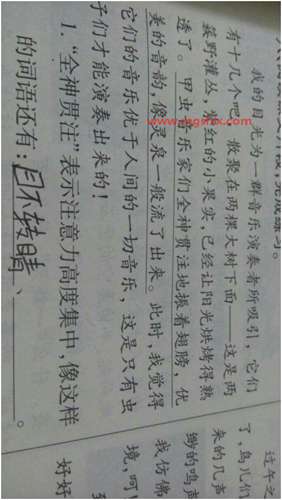 段,完成练习。
我的目光为一群音乐演奏者所吸引,它们
有十几个吧,散聚在两棵大树下面——这是两
簇野灌丛,紫红的小果实,已经让阳光烘烤得熟
透了。甲虫音乐家们全神贯注地振着翅膀,优
美的音韵,像灵泉一般流了出来。此时,我觉得
它们的音乐优于人间的一切音乐,这是只有虫
子们才能演奏出来的!
1.“全神贯注”表示注意力高度集中,像这样
的词语还有:目不转睛、。
过年之
了,鸟儿们
来的几声
缈的鸣声
我仿佛
境,呵!
好好